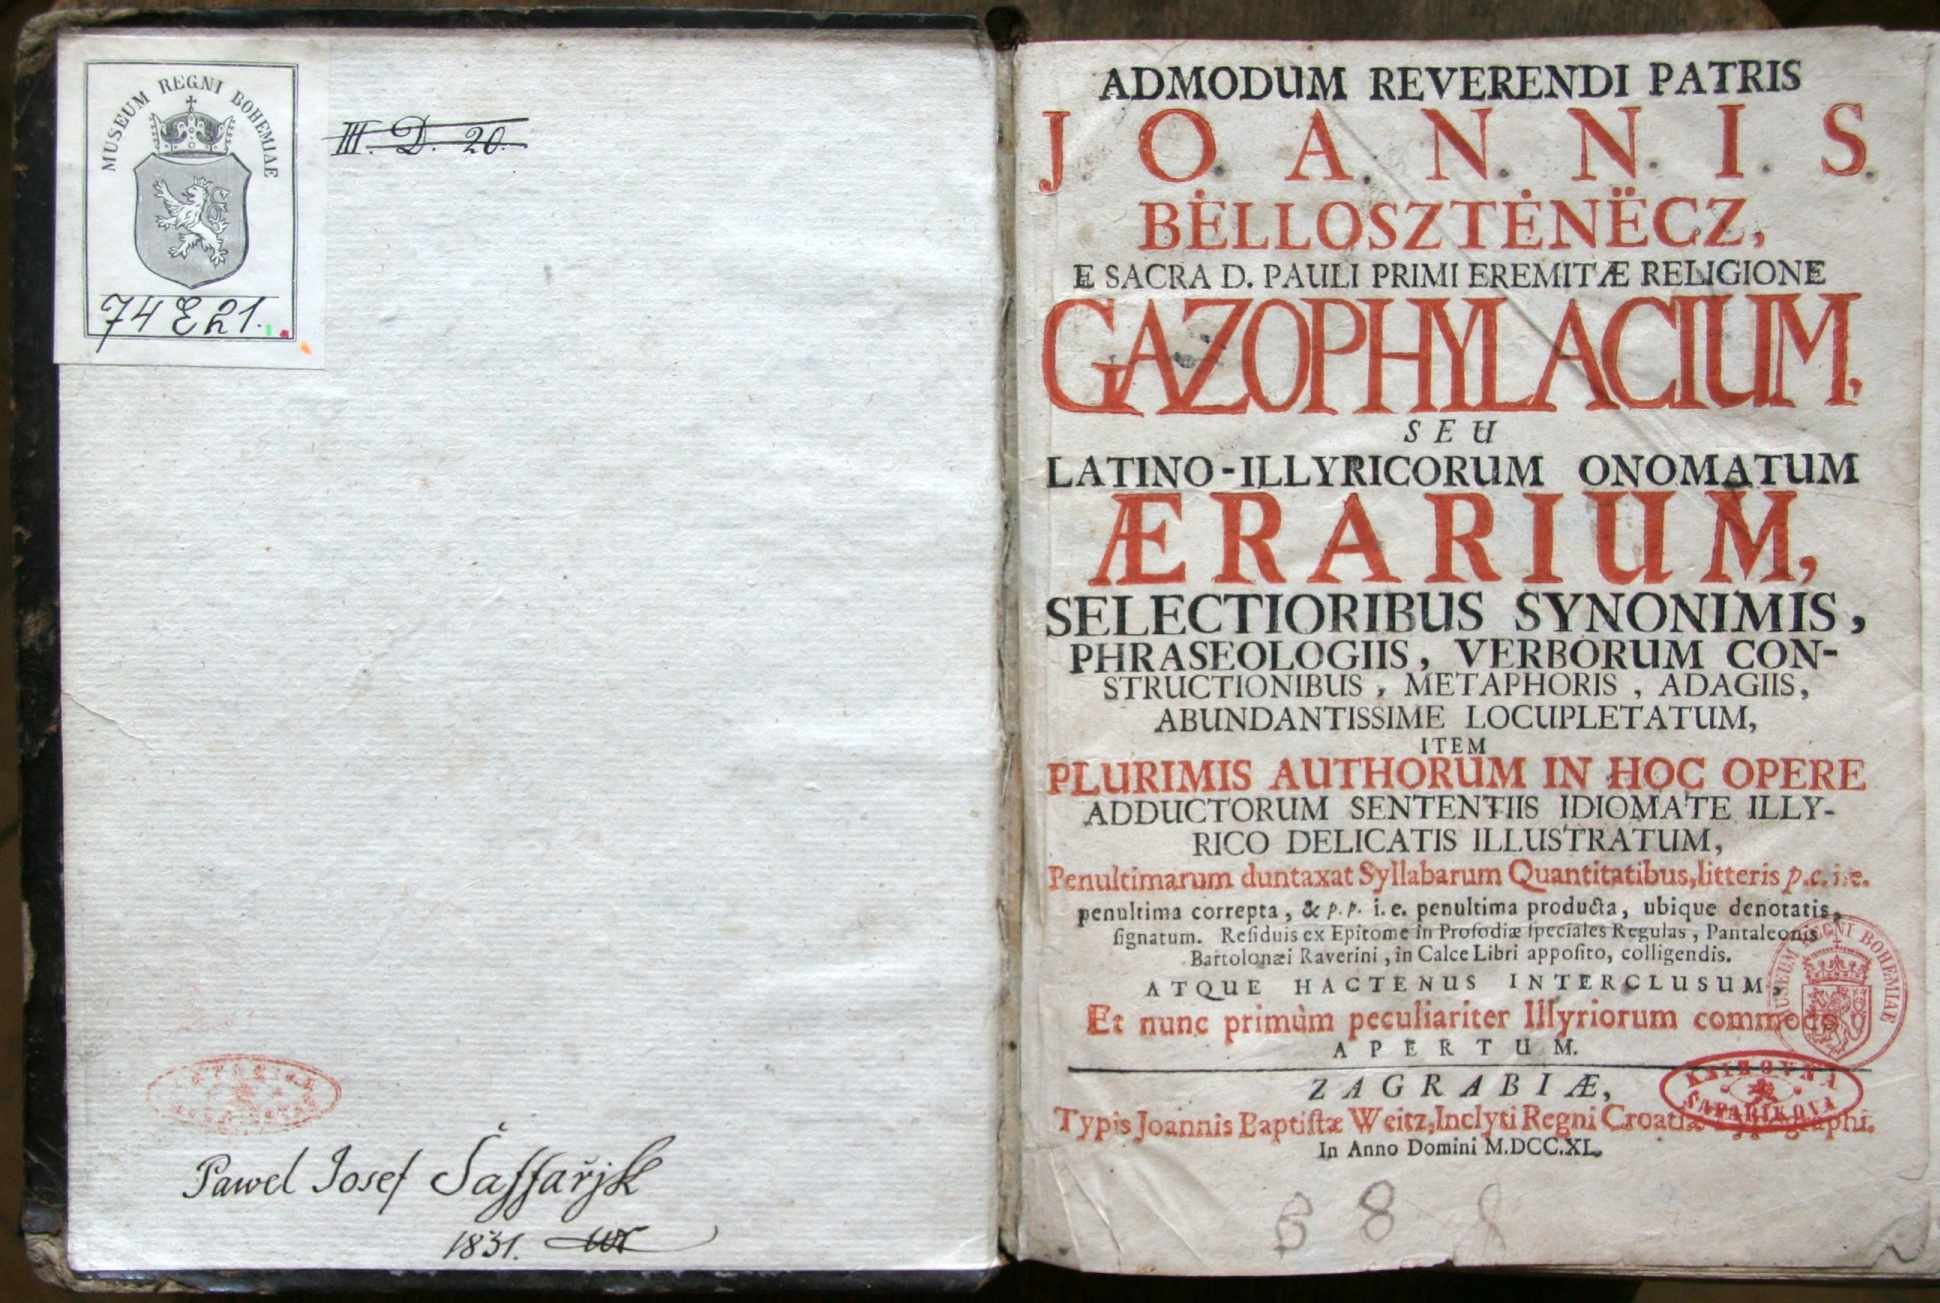 MUSEUM REGNI BOHEMIAE
74 E 21.
III. D. 20.
Pawel Josef Šaffařjk
1831.
ADMODUM REVERENDI PATRIS
J. O. A. N. N. I. S.
BĖLLOSZTĖNËCZ,
E SACRA D. PAULI PRIMI EREMITÆ RELIGIONE
GAZOPHYLACIUM,
SEU
LATINO-ILLYRICORUM ONOMATUM
ÆRARIUM,
SELECTIORIBUS SYNONIMIS,
PHRASEOLOGIIS, VERBORUM CON-
STRUCTIONIBUS, METAPHORIS, ADAGIIS,
ABUNDANTISSIME LOCUPLETATUM,
ITEM
PLURIMIS AUTHORUM IN HOC OPERE
ADDUCTORUM SENTENTIIS IDIOMATE ILLY-
RICO DELICATIS ILLUSTRATUM,
Penultimarum duntaxat Syllabarum Quantitatibus, litteris p.c. i.e.
penultima correpta, & p.p. i.e. penultima producta, ubique denotatis,
signatum. Residuis ex Epitome in Prosodiæ speciales Regulas, Pantaleonis
Bartolonæi Raverini, in Calce Libri apposito, colligendis.
ATQUE HACTENUS INTERCLUSUM,
Et nunc primùm peculiariter Illyriorum commodo
APERTUM.
MUSEUM REGNI BOHEMIAE
ZAGRABIÆ,
KNIHOVNA
ŠAFAŘÍKOVA
Typis Joannis Baptistæ Weitz, Inclyti Regni Croatiæ Typographi.
In Anno Domini M.DCC.XL.